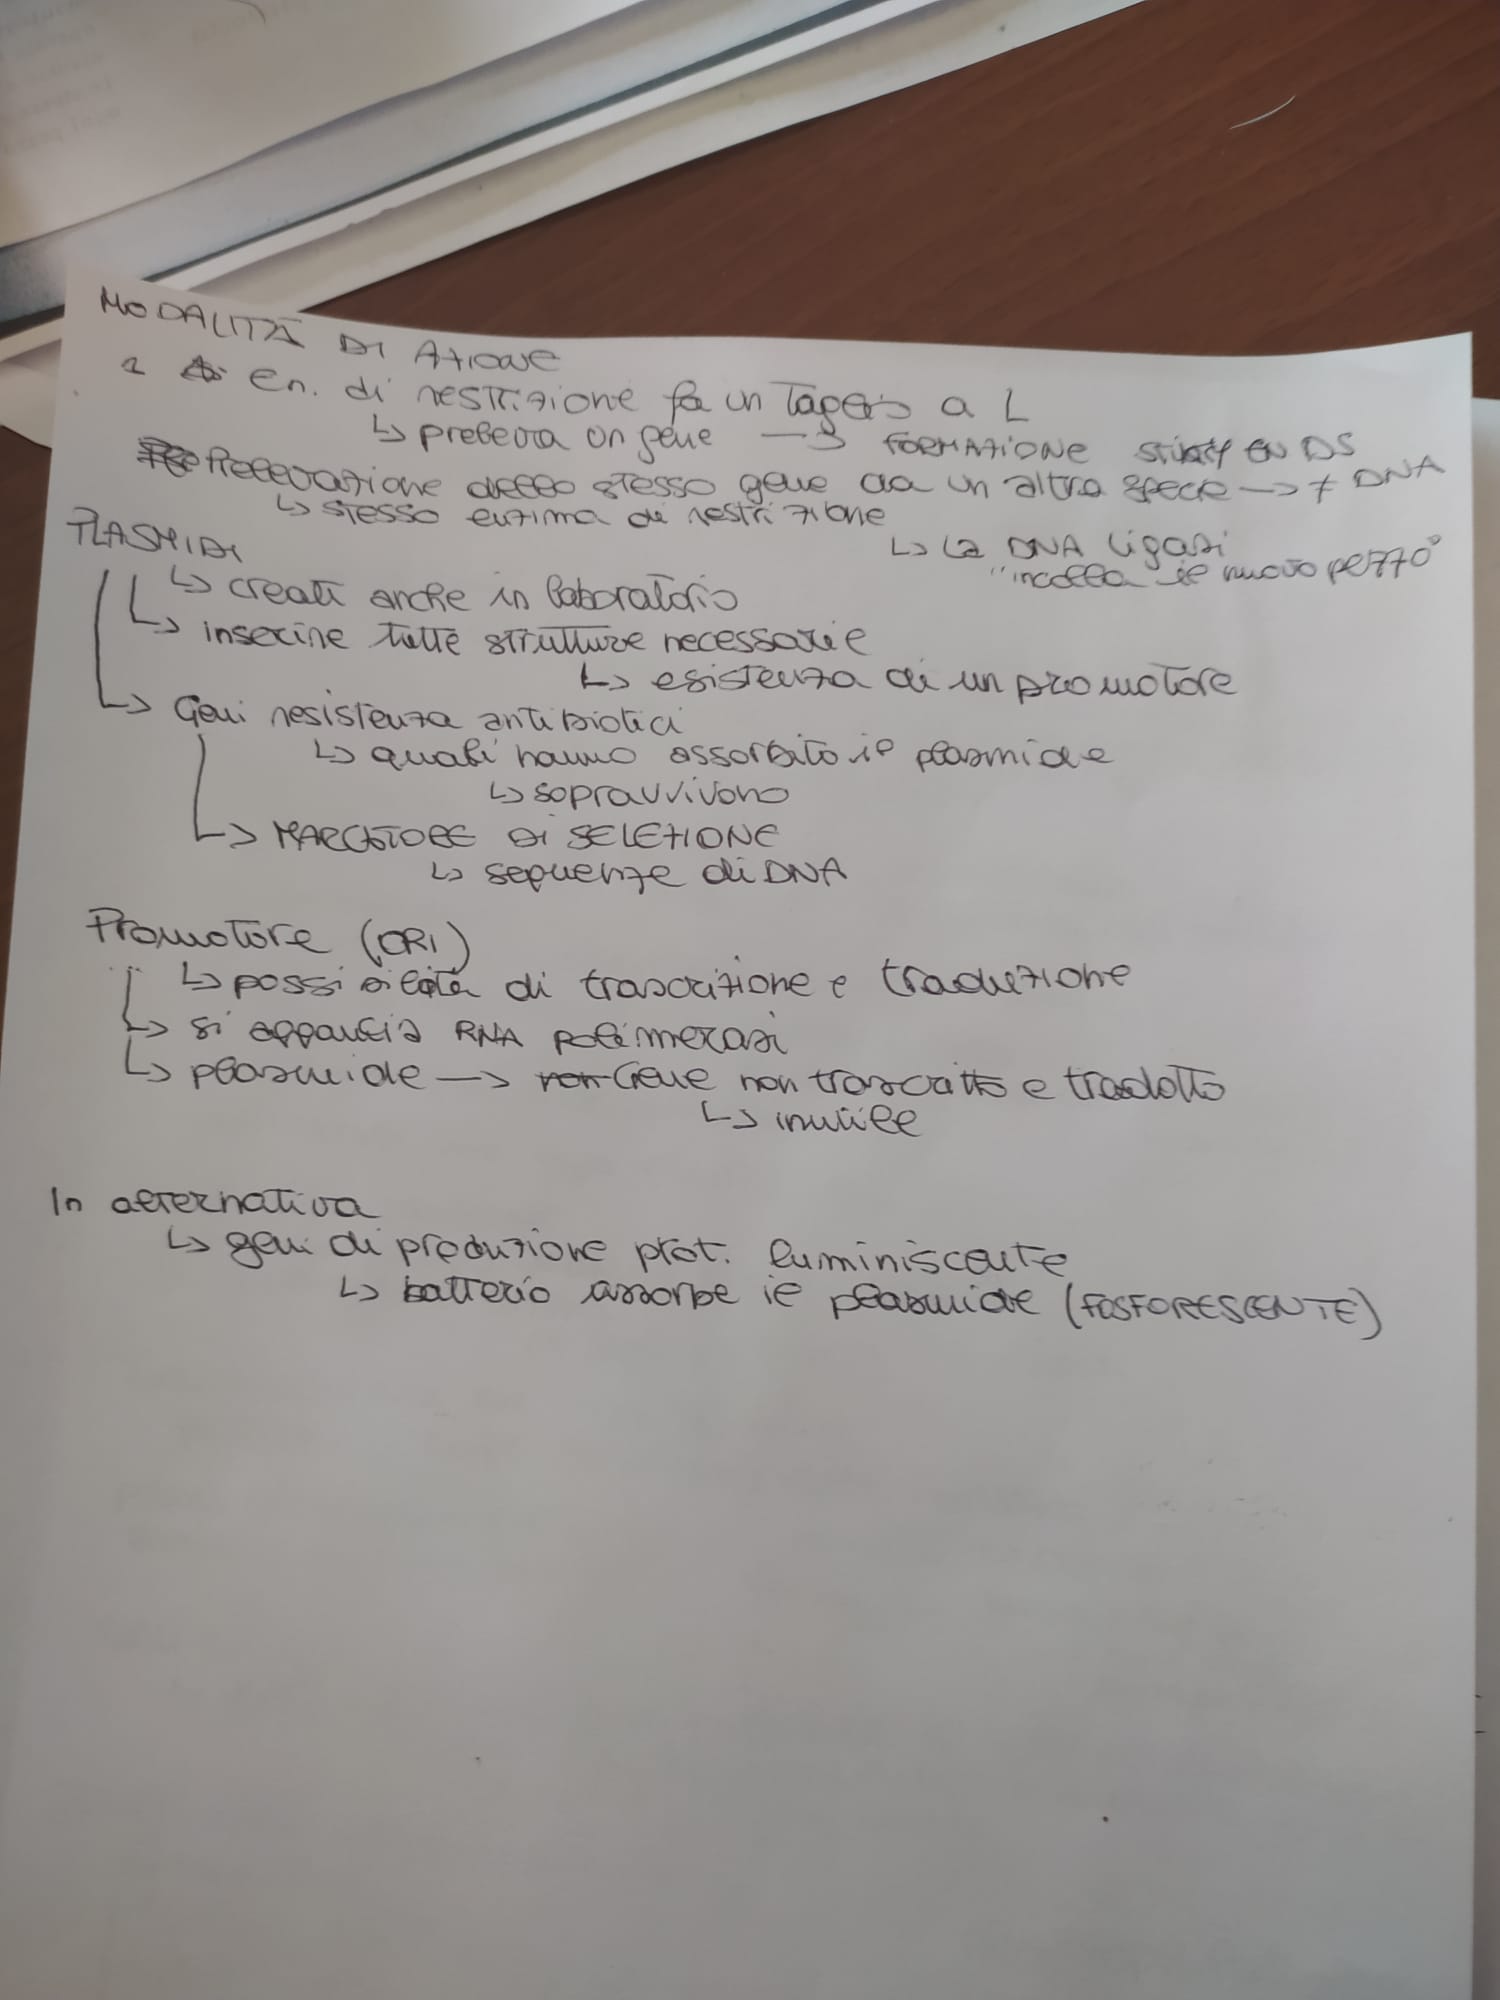 MODALITÀ DI AZIONE
1 En. di restrizione fa un taglio a L
↳ preleva un gene → FORMAZIONE STICKY ENDS
Prelevazione dello stesso gene da un altra specie → ≠ DNA
↳ stesso enzima di restrizione
↳ La DNA ligasi
"incolla il nuovo pezzo"
PLASMIDI
↳ creati anche in laboratorio
↳ inserire tutte strutture necessarie
↳ esistenza di un promotore
↳ Geni resistenza antibiotici
↳ quali hanno assorbito il plasmide
↳ sopravvivono
↳ MARCATORE DI SELEZIONE
↳ sequenze di DNA
Promotore (ORI)
↳ possibilità di trascrizione e traduzione
↳ si aggancia RNA polimerasi
↳ plasmide → Gene non trascritto e tradotto
↳ inutile
In alternativa
↳ geni di produzione prot. luminiscente
↳ batterio assorbe il plasmide (FOSFORESCENTE)